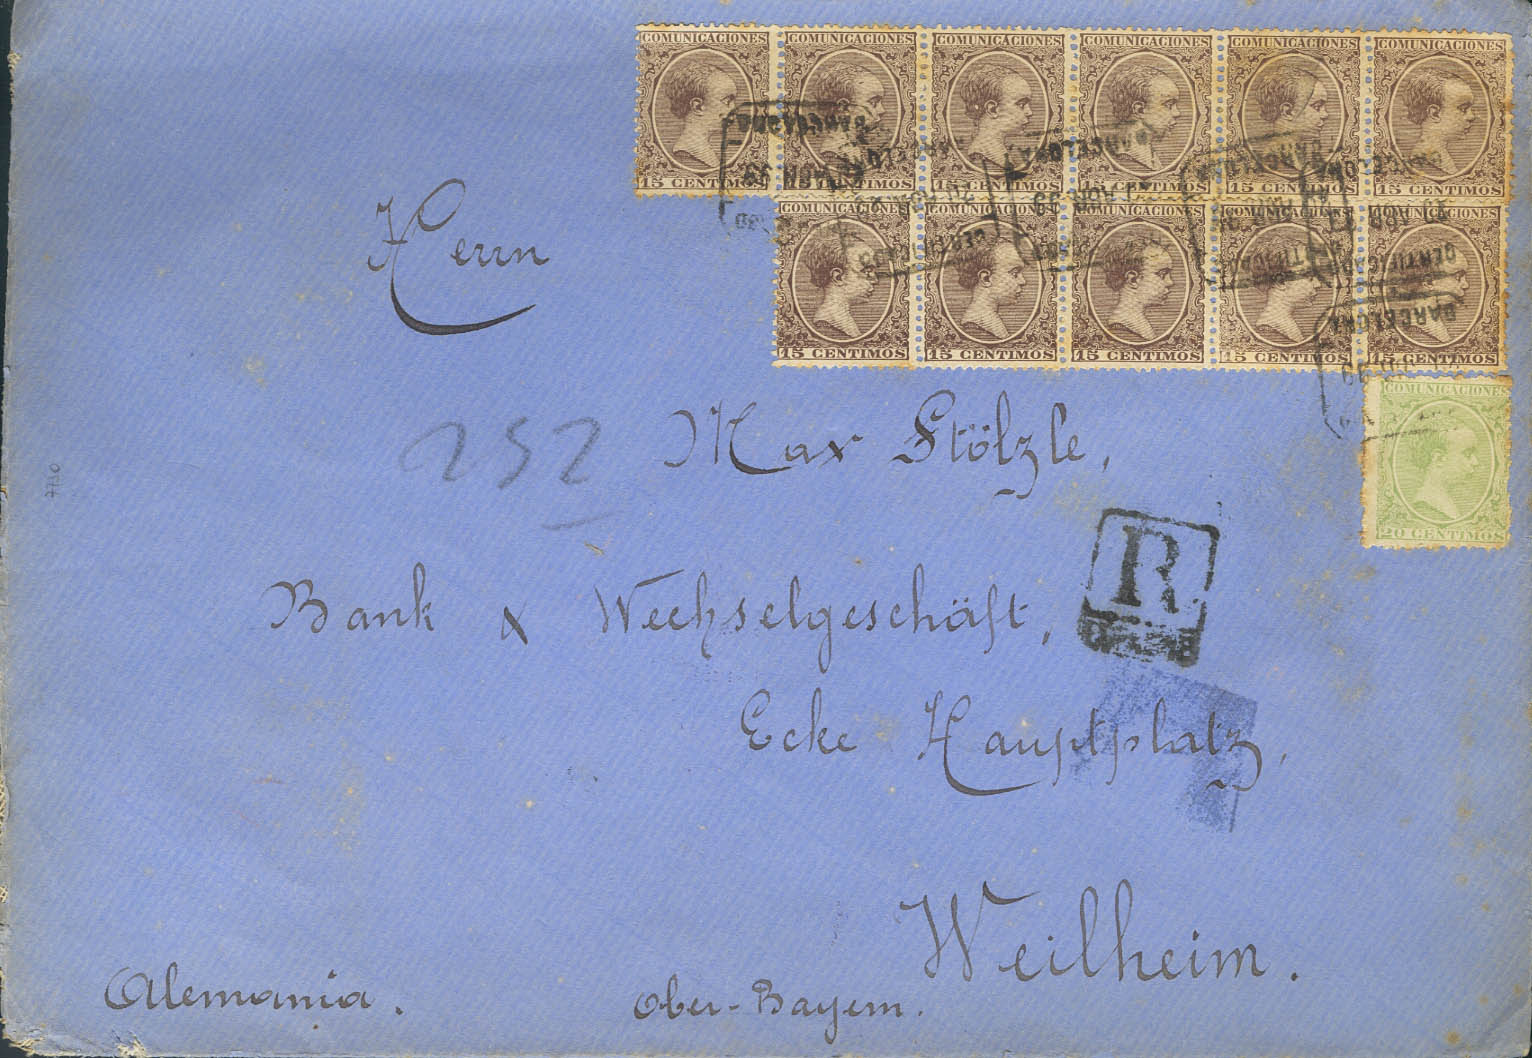 COMUNICACIONES COMUNICACIONES COMUNICACIONES COMUNICACIONES COMUNICACIONES COMUNICACIONES
15 CENTIMOS 15 CENTIMOS 15 CENTIMOS 15 CENTIMOS 15 CENTIMOS 15 CENTIMOS
15 CENTIMOS 15 CENTIMOS 15 CENTIMOS 15 CENTIMOS 15 CENTIMOS
BARCELONA
CERTIFICADO
COMUNICACIONES
20 CENTIMOS
Herrn
252
Max Stölzle,
7730
R
Bank & Wechselgeschäft,
Ecke Hauptplatz,
Weilheim.
Alemania.
Ober-Bayern.